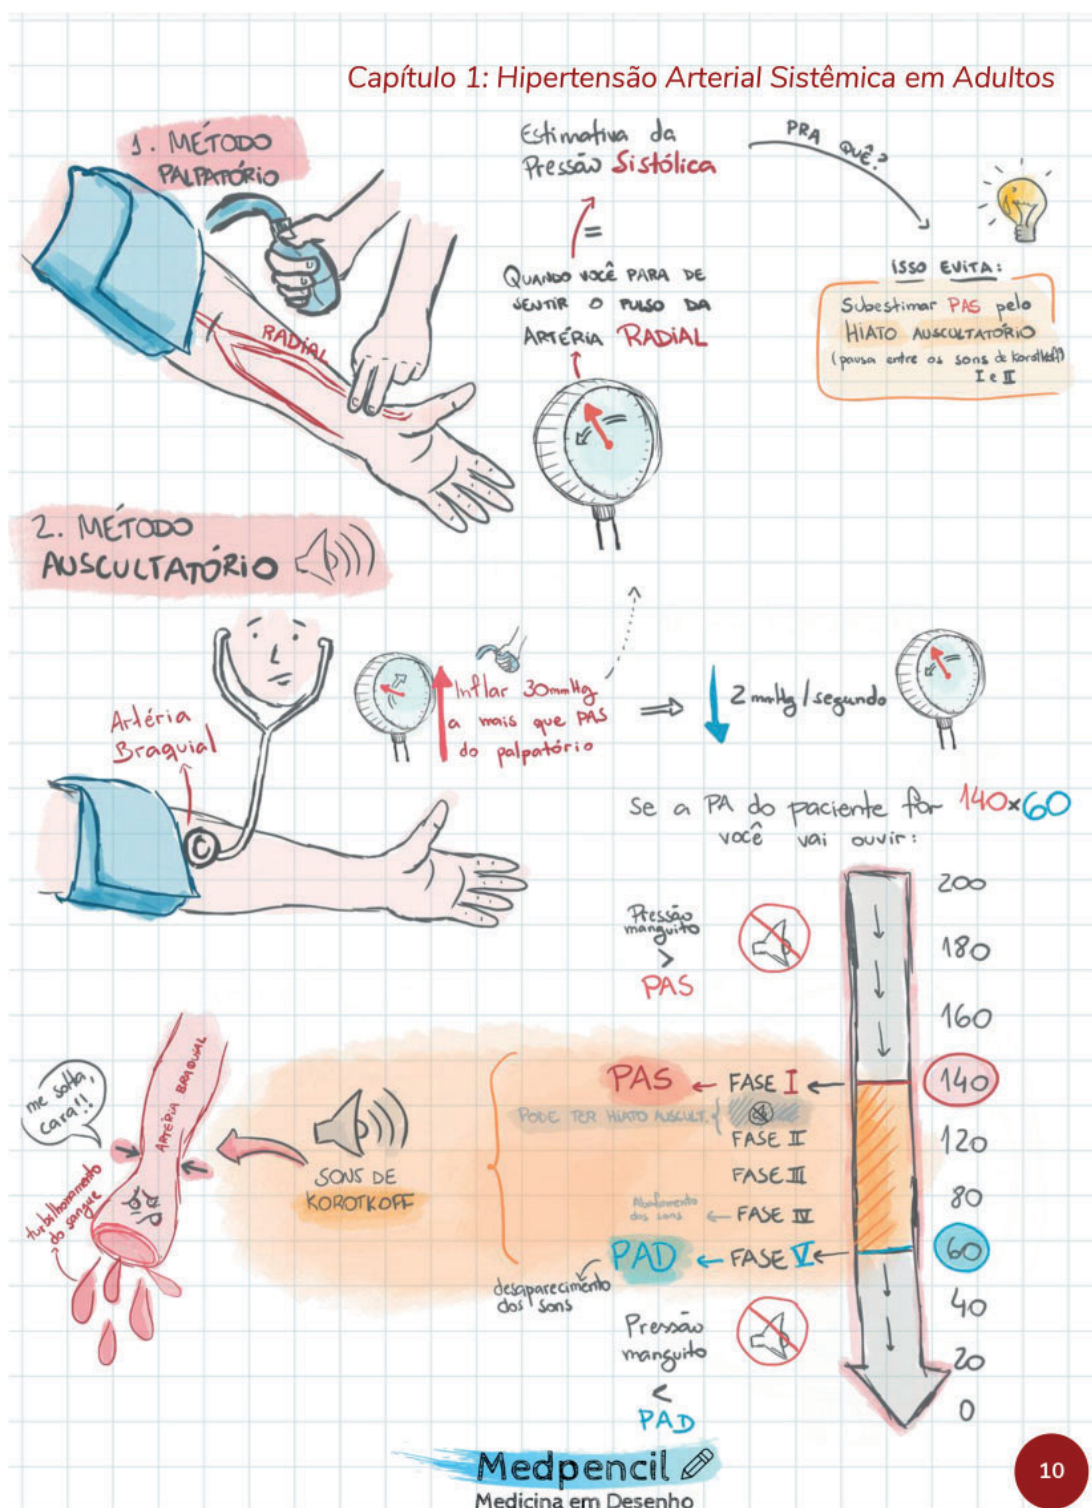 Capítulo 1: Hipertensão Arterial Sistêmica em Adultos
1. MÉTODO
PALPATÓRIO
RADIAL
Estimativa da
Pressão Sistólica
=
QUANDO VOCÊ PARA DE
SENTIR O PULSO DA
ARTÉRIA RADIAL
PRA QUÊ?
ISSO EVITA:
Subestimar PAS pelo
HIATO AUSCULTATÓRIO
(pausa entre os sons de Korotkoff
I e II
2. MÉTODO
AUSCULTATÓRIO
Artéria
Braquial
Inflar 30mmHg
a mais que PAS
do palpatório
2 mmHg/segundo
Se a PA do paciente for 140x60
você vai ouvir:
200
180
160
140
120
80
60
40
20
0
Pressão
manguito
>
PAS
PAS ← FASE I
PODE TER HIATO AUSCULT.
FASE II
FASE III
Abafamento
dos sons ← FASE IV
PAD ← FASE V
desaparecimento
dos sons
Pressão
manguito
<
PAD
SONS DE
KOROTKOFF
ARTÉRIA BRAQUIAL
me solta,
cara!!
turbilhonamento
do sangue
Medpencil
Medicina em Desenho
10